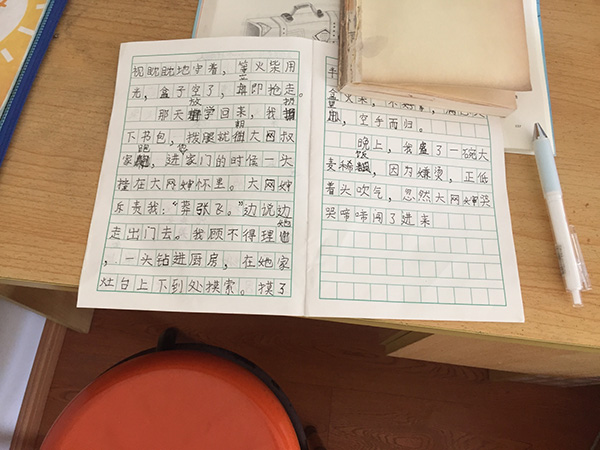 视眈眈地守着，等火柴用
光，盒子空了，立即抢走。
那天放学回来，我扔
下书包，拔腿就朝大网叔
家跑，进家门的时候一头
撞在大网婶怀里。大网婶
斥责我："莽张飞。"边说边
走出门去。我顾不得理她
，一头钻进厨房，在她家
灶台上下到处摸索。摸了
，空手而归。
晚上，我盛了一碗大
麦稀饭，因为嫌烫，正低
着头吹气，忽然大网婶哭
哭啼啼闯了进来